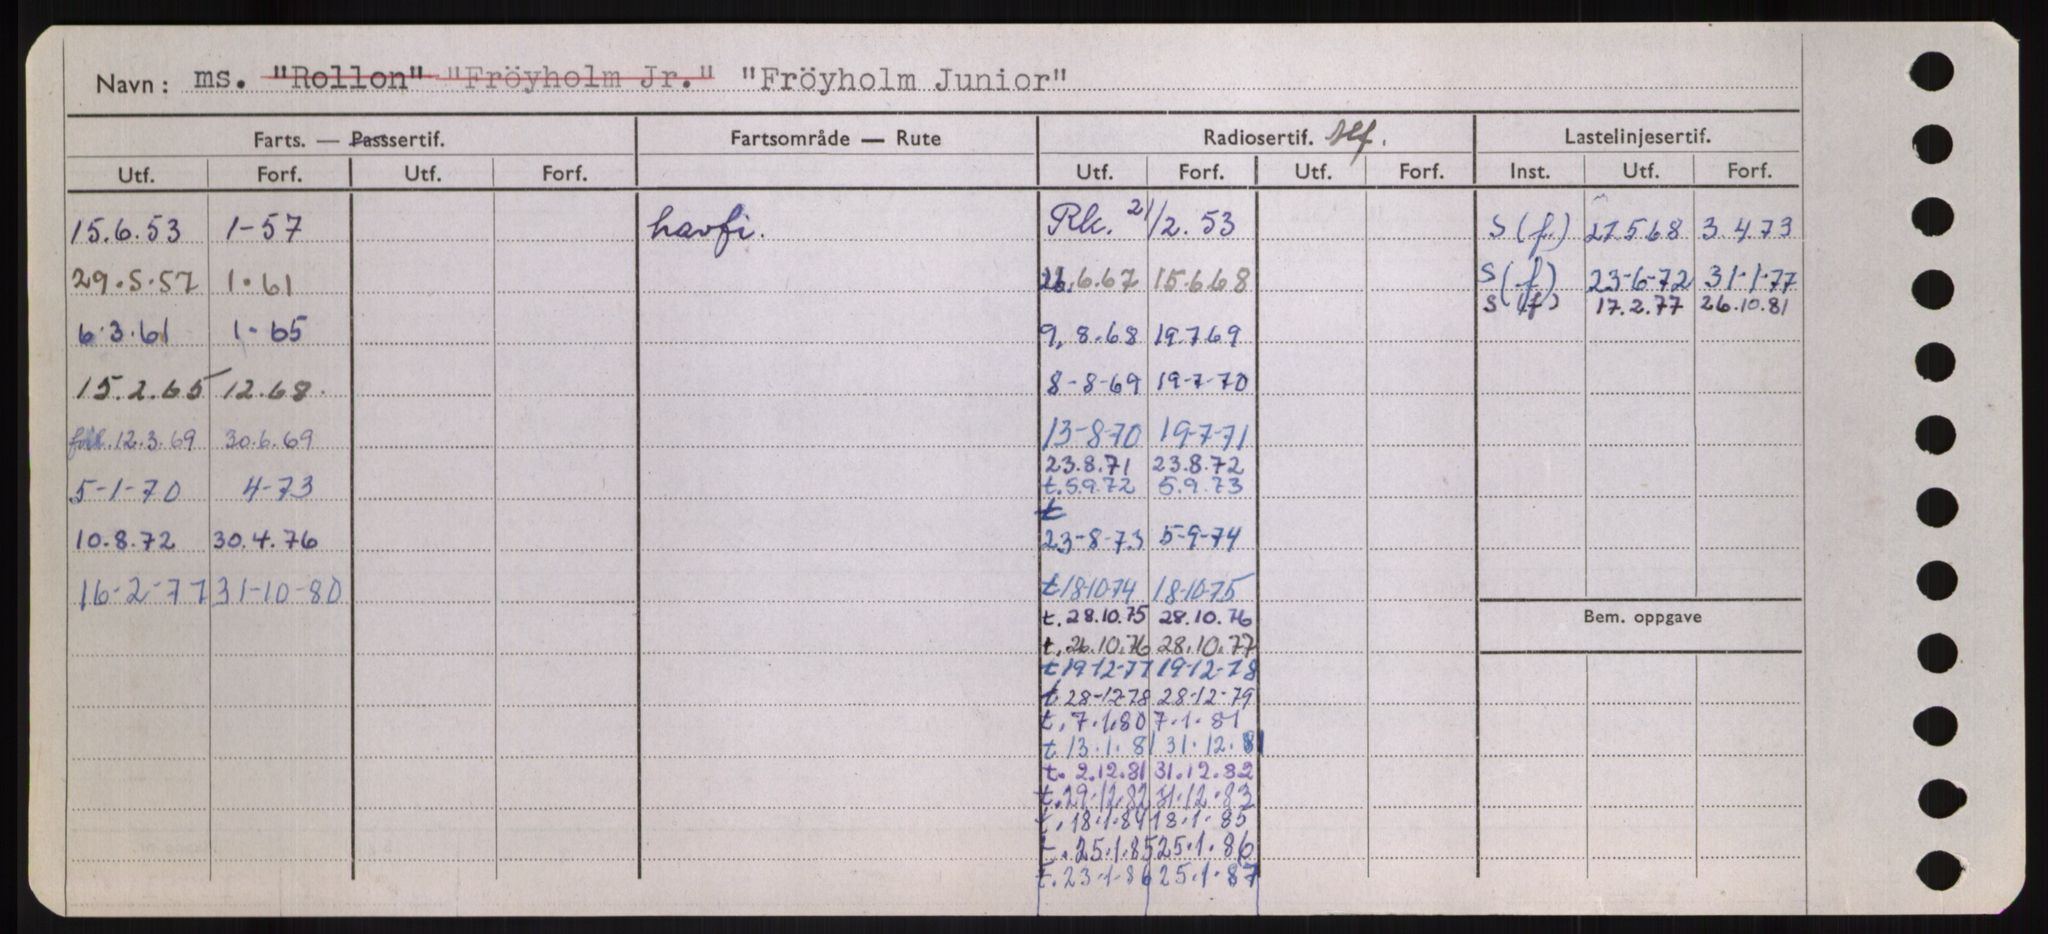 Navn: ms. "Rollon" "Fröyholm Jr." "Fröyholm Junior"
Farts. — Passsertif. Fartsområde — Rute Radiosertif. tlf. Lastelinjesertif.
Utf. Forf. Utf. Forf. Utf. Forf. Utf. Forf. Inst. Utf. Forf.
15.6.53 1-57 havfi. Rk. 21/2.53 S(f.) 27.5.68 3.4.73
29.5.57 1.61 21.6.67 15.6.68 S(f) 23-6-72 31.1.77
S(f) 17.2.77 26.10.81
6.3.61 1-65 9.8.68 19.7.69
15.2.65 12.68. 8-8-69 19-7-70
forl. 12.3.69 30.6.69 13-8-70 19-7-71
23.8.71 23.8.72
5-1-70 4-73 t.5.9.72 5.9.73
t
10.8.72 30.4.76 23-8-73 5-9-74
16-2-77 31-10-80 t 18-10-74 18-10-75
t. 28.10.75 28.10.76
Bem. oppgave
t. 26.10.76 28.10.77
t 19-12-77 19-12-78
t 28-12-78 28-12-79
t. 7.1.80 7.1.81
t 13.1.81 31.12.81
t. 2.12.81 31.12.82
t. 29.12.82 31.12.83
t. 18.1.84 18.1.85
t. 25.1.85 25.1.86
t. 23.1-86 25.1.87